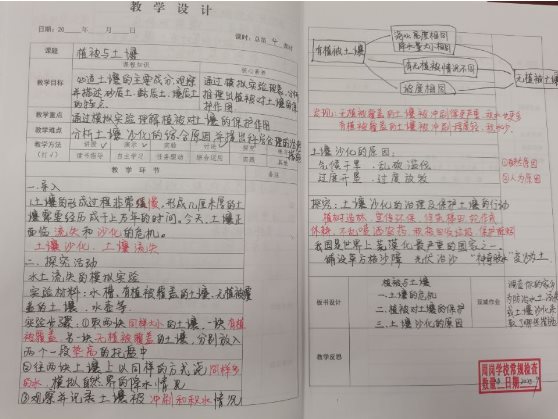 教 学 设 计
日期：20 年 月 日
课时：总第 课时
课题
植被与土壤
课程知识
核心素养
教学目标
知道土壤的主要成分,观察
并描述砂质土、黏质土、壤质土
的特点
通过模拟实验探究,分析
推理出植被对土壤的保
护作用
教学重点
通过模拟实验探究了解植被对土壤的保护作用
教学难点
分析土壤沙化的综合原因并提出科学合理的治理措施
教学方法
(打√)
讲授 演示 实验 讨论 探究
读书指导 自主学习 任务驱动 参观 其他
教 学 环 节
备注
一.导入
1.土壤的形成过程非常缓慢,形成几厘米厚的土
壤需要经历成千上万年的时间。今天,土壤正
面临流失和沙化的危机。
土壤沙化、土壤流失
二、探究活动
水土流失的模拟实验
实验材料:水槽、有植被覆盖的土壤、无植被覆
盖的土壤、水壶等
实验步骤:①取两块同样大小的土壤,一块有植
被覆盖,另一块无植被覆盖的土壤,分别放入
两个一段垫高的托盘中
②往两块土壤上以同样的方式浇同样多
的水,模拟自然界的降水情况
③观察并记录土壤被冲刷和积水情况
有植被土壤
浇水高度相同
降水量大小相同
有无植被情况不同
坡度相同
无植被土壤
发现:无植被覆盖的土壤被冲刷得更严重,积水更多
有植被覆盖的土壤被冲刷程度轻,积水少.
土壤沙化的原因:
气候干旱、乱砍滥伐
过度开垦、过度放牧
①自然原因
②人为原因
探究:土壤沙化的治理及保护土壤的行动
植树造林,宣传环保,
休耕,不乱喷洒农药,
我国是世界上荒漠化最严重的国家之一。
铺设草方格沙障 光伏治沙
板书设计
植被与土壤
一.土壤的危机
二.植被对土壤的保护
三.土壤沙化的原因
教学反思
周岗学校常规检查
数量 日期